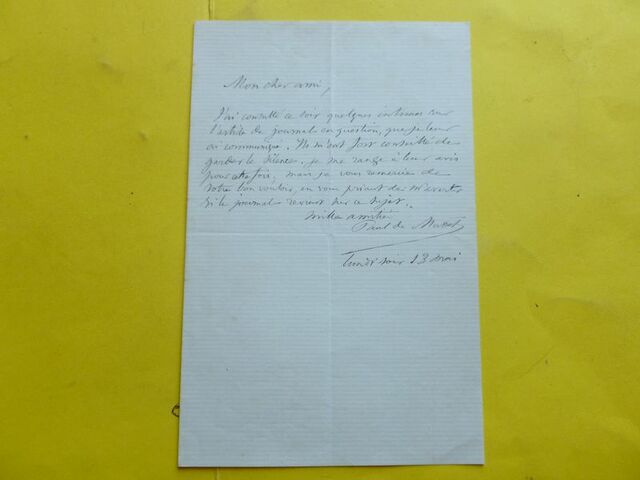 Mon cher ami,
J'ai consulté ce soir quelques intimes sur
l'article du journal en question, que je leur
ai communiqué. Ils m'ont fort conseillé de
garder le silence. je me range à leur avis
pour cette fois, mais je vous remercie de
votre bon vouloir, en vous priant de m'avertir
si le journal revient sur ce sujet.
mille amitiés
Paul de Musset
Lundi soir 13 mai